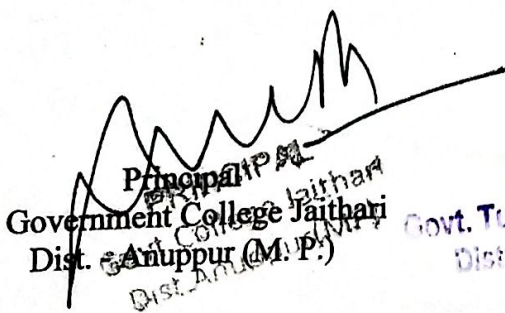 Principal
Government College Jaithari
Dist. - Anuppur (M. P.)
PRINCIPAL
Govt. College Jaithari
Dist. Anuppur (M.P.)
Govt. Tu
Dist